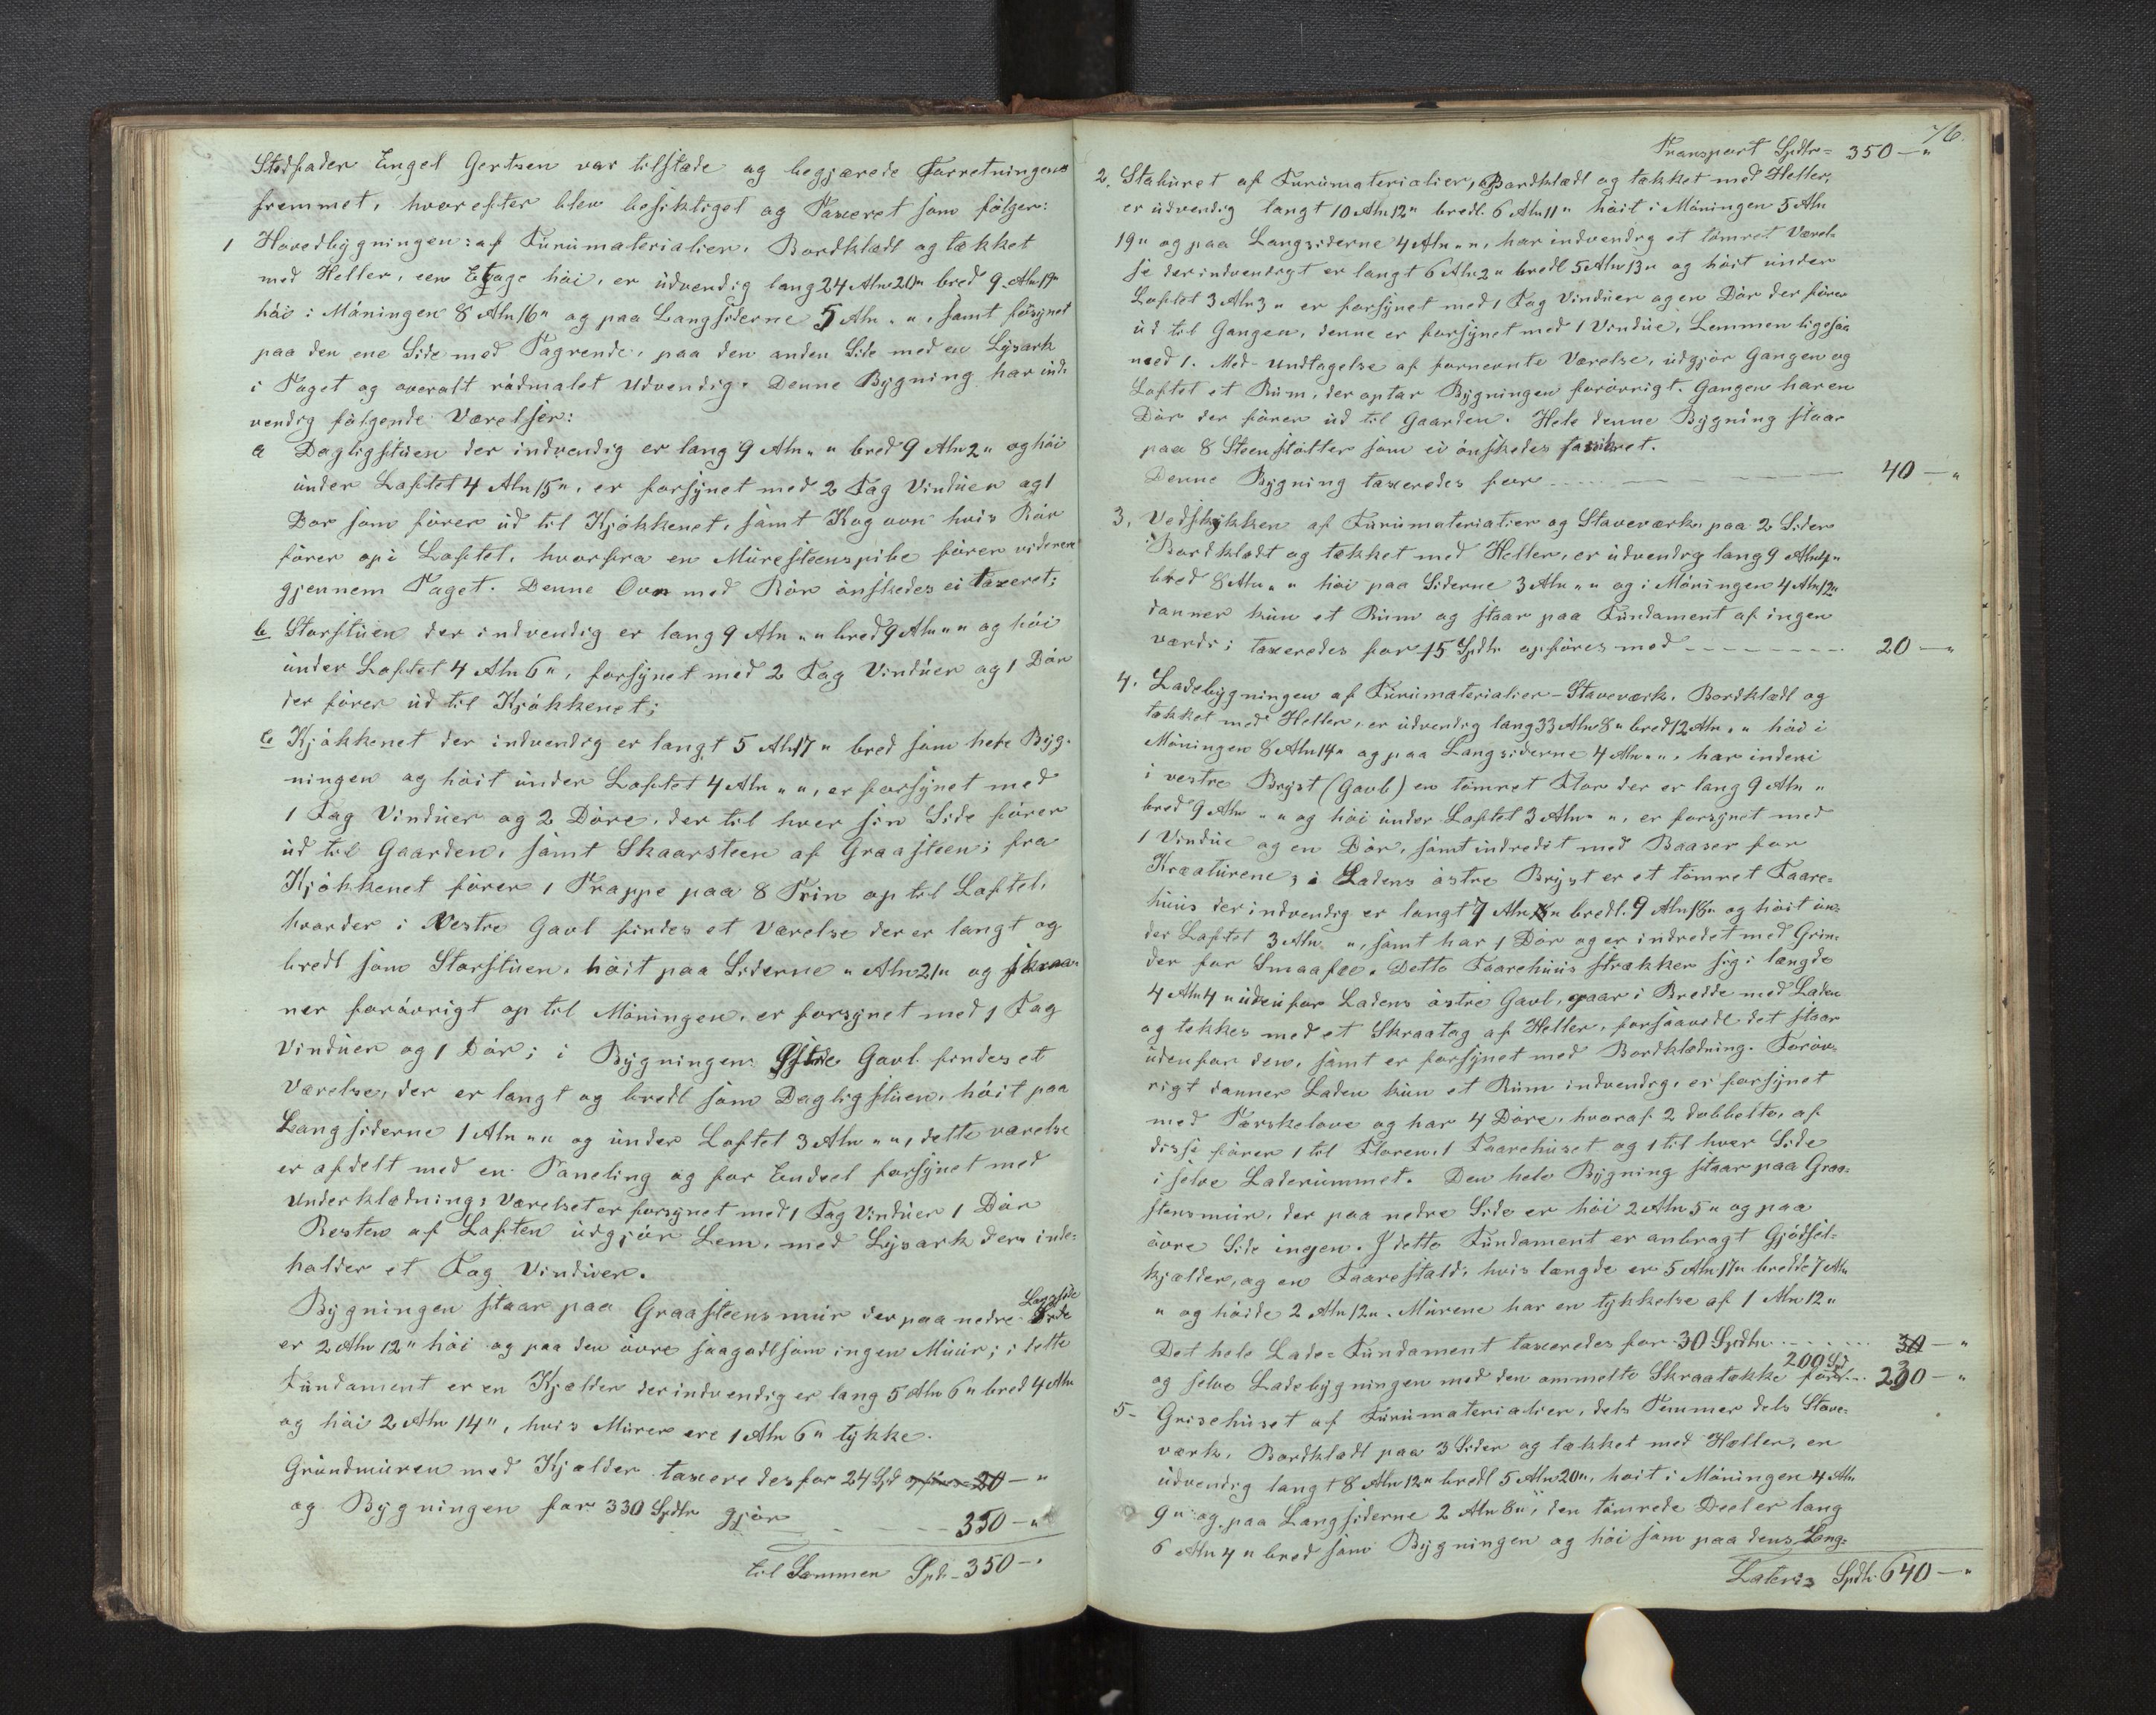 Stedfader Engel Gertsen var tilstæde og begjærede Forretningen
fremmet, hvorefter blev besiktiget og Taxeret som følger:
1 Hovedbygningen: af Furumaterialier, Bordklædt og tækket
med Heller, een Etage høi, er udvendig lang 24 Aln 20" bred 9 Aln 19"
høi i Møningen 8 Aln 16" og paa Langsiderne 5 Aln " ", samt forsynet
paa den ene Side med Tagrende, paa den anden Side med en Lysark
i Taget og overalt rødmalet Udvendig. Denne Bygning har ind-
vendig følgende Værelser:
a Dagligstuen der indvendig er lang 9 Aln " " bred 9 Aln 2" og høi
under Loftet 4 Aln 15", er forsynet med 2 Fag Vinduer og 1
Dør som fører ud til Kjøkkenet, samt Kogovn hvis Rør
fører op i Loftet, hvorfra en Muresteenspibe fører videre
gjennem Taget. Denne Ovn med Rør ønskedes ei taxeret;
b Storstuen der indvendig er lang 9 Aln " " bred 9 Aln " " og høi
under Loftet 4 Aln 6", forsynet med 2 Fag Vinduer og 1 Dør
der fører ud til Kjøkkenet;
c Kjøkkenet der indvendig er langt 5 Aln 17" bred som hele Byg-
ningen og høit under Loftet 4 Aln " ", er forsynet med
1 Fag Vinduer og 2 Døre, der til hver sin Side fører
ud til Gaarden, samt Skaarsteen af Graasteen; fra
Kjøkkenet fører 1 Trappe paa 8 Trin op til Loftet,
hvorder i Vestre Gavl findes et Værelse der er langt og
bredt som Storstuen, høit paa Siderne " Aln 21" og skraa-
ner forøvrigt op til Møningen, er forsynet med 1 Fag
Vinduer og 1 Dør; i Bygningens Østre Gavl findes et
Værelse, der er langt og bredt som Dagligstuen, høit paa
Langsiderne 1 Aln " " og under Loftet 3 Aln " ", dette værelse
er afdelt med en Paneling og for Endeel forsynet med
Underklædning; Værelset er forsynet med 1 Fag Vinduer 1 Dør
Resten af Loftet udgjør Lem, med Lysark der inde-
holder et Fag Vinduer.
Bygningen staar paa Graasteensmuur der paa nedre Langside
er 2 Aln 12" høi og paa den øvre saagodtsom ingen Muur; i dette
Fundament er en Kjælder der indvendig er lang 5 Aln 6" bred 4 Aln
og høi 2 Aln 14", hvis Murer ere 1 Aln 6" tykke.
Grundmuren med Kjælder taxeredes for 24 Spd opføres 20 — "
og Bygningen for 330 Spdlr gjør - - - 350 — "
til Sammen Spd - 350 — "
76.
Transport Spdlr = 350 — "
2. Staburet af Furumaterialier, Bordklædt og tækket med Heller,
er udvendig langt 10 Aln 12" bredt 6 Aln 11" høit i Møningen 5 Aln
19" og paa Langsiderne 4 Aln " ", har indvendig et tømret Værel-
se der indvendigt er langt 6 Aln 2" bredt 5 Aln 13" og høit under
Loftet 3 Aln 3" er forsynet med 1 Fag Vinduer og en Dør der fører
ud til Gangen, denne er forsynet med 1 Vindue, Lemmen ligesaa
med 1. Med Undtagelse af fornevnte Værelse, udgjør Gangen og
Loftet et Rum, der optar Bygningen forøvrigt. Gangen har en
Dør der fører ud til Gaarden. Hele denne Bygning staar
paa 8 Steenstøtter som ei ønskedes
Denne Bygning taxeredes for - - - 40 — "
3, Vedskykken af Furumaterialier og Staveværk, paa 2 Sider
Bordklædt og tækket med Heller, er udvendig lang 9 Aln
bred 8 Aln " " høi paa Siderne 3 Aln " " og i Møningen 4 Aln 12"
danner kun et Rum og staar paa Fundament af ingen
værdi; taxeredes for 15 Spdlr opføres med - - - 20 — "
4. Ladebygningen af Furumaterialier - Staveværk, Bordklædt og
tækket med Heller, er udvendig lang 33 Aln 8" bred 12 Aln " " høi i
Møningen 8 Aln 14" og paa Langsiderne 4 Aln " ", har inderi
i vestre Bryst (Gavl) en tømret Flor der er lang 9 Aln "
bred 9 Aln " " og høi under Loftet 3 Aln " ", er forsynet med
1 Vindue og en Dør, samt indredit med Baaser for
Kræaturene; i Ladens østre Bryst er et tømret Faare-
huus der indvendig er langt 7 Aln 8" bredt 9 Aln 18" og høit un-
der Loftet 3 Aln " ", samt har 1 Dør og er indredet med Grin-
der for Smaafæe. Dette Faarehuus strækker sig i længde
4 Aln 4" udenfor Ladens østre Gavl, gaar i Bredde med Laden
og tekkes med et Skraatag af Heller, forsaavidt det staar
udenfor den, samt er forsynet med Bordklædning. Forøv-
rigt danner Laden kun et Rum indvendig, er forsynet
med Tørskelove og har 4 Døre, hvoraf 2 dobbelte, af
disse fører 1 til Floren, 1 Faarehuset og 1 til hver Side
i selve Laderummet. Den hele Bygning staar paa Graa-
stensmur, der paa nedre Side er høi 2 Aln 5" og paa
øvre Side ingen. I dette Fundament er anbragt Gjødsel-
kjælder, og en Faarestald, hvis længde er 5 Aln 17" bredde 7 Aln
" og høide 2 Aln 12". Murene har en tykkelse af 1 Aln 12"
Det hele Lade-Fundament taxeredes for 30 Spdlr - - - 30 — "
og selve Ladebygningen med den ommelte Skraatække for 200 Spd - - 230 — "
5- Grisehuset af Furumaterialier, dels Tømmer dels Stave-
værk, Bordklædt paa 3 Sider og tækket med Heller, er
udvendig langt 8 Aln 12" bredt 5 Aln 20", høit i Møningen 4 Aln
9" og paa Langsiderne 2 Aln 8", den tømrede Deel er lang
6 Aln 4" bred som Bygningen og høi som paa dens Lang-
Lateris Spdlr. 640 — "